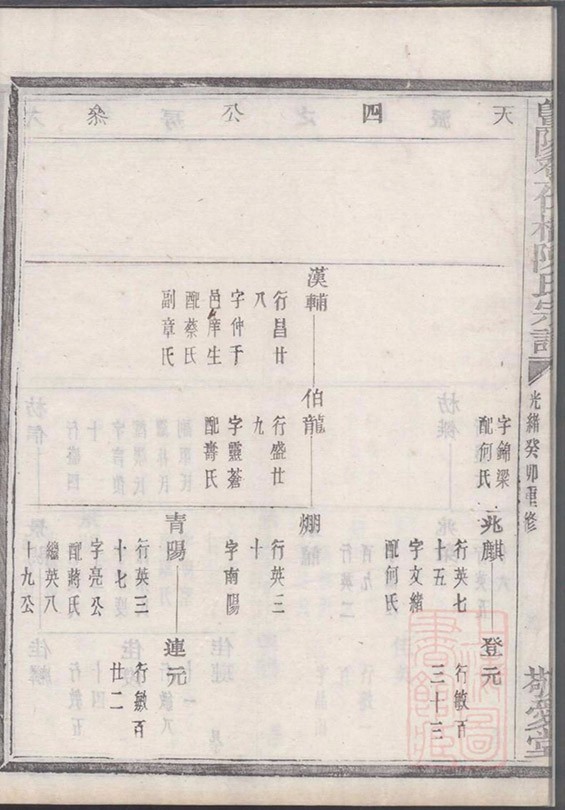 天四公叅
字錦梁
配何氏
兆麒
行英七
十五
字文緒
配何氏
登元
行敏百
三十三
漢輔
行昌廿
八
字仲于
邑庠生
配蔡氏
副章氏
伯龍
行盛廿
九
字靈蒼
配壽氏
行英三
十
字南陽
青陽
行英三
十七
字亮公
配蔣氏
繼英八
十九公
蓮元
行敏百
廿二
陳氏宗譜
光緒癸卯重修
敬愛堂